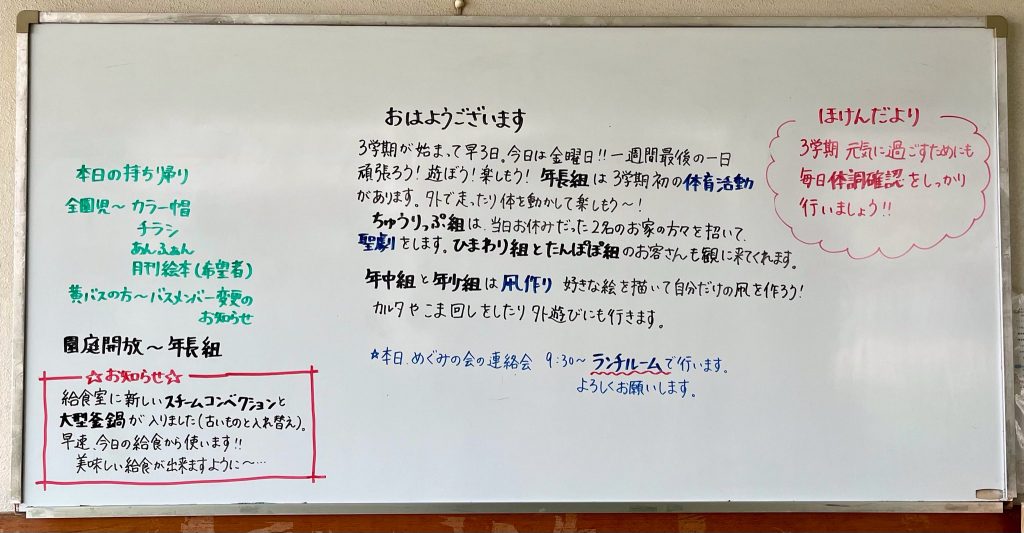 おはようございます
3学期が始まって早3日。今日は金曜日!!一週間最後の一日
頑張ろう!遊ぼう!楽しもう!年長組は3学期初の体育活動
があります。外で走ったり体を動かして楽しもう〜!
ちゅうりっぷ組は、当日お休みだった2名のお家の方々を招いて、
聖劇をします。ひまわり組とたんぽぽ組のお客さんも観に来てくれます。
年中組と年少組は凧作り 好きな絵を描いて自分だけの凧を作ろう!
カルタやこま回しをしたり外遊びにも行きます。
☆本日、めぐみの会の連絡会 9:30〜ランチルームで行います。
よろしくお願いします。
本日の持ち帰り
全園児〜カラー帽
チラシ
あんふぁん
月刊絵本(希望者)
黄バスの方〜バスメンバー変更の
お知らせ
園庭開放〜年長組
☆お知らせ☆
給食室に新しいスチームコンベクションと
大型釜鍋が入りました(古いものと入れ替え)。
早速、今日の給食から使います!!
美味しい給食が出来ますように〜…
ほけんだより
3学期 元気に過ごすためにも
毎日体調確認をしっかり
行いましょう!!